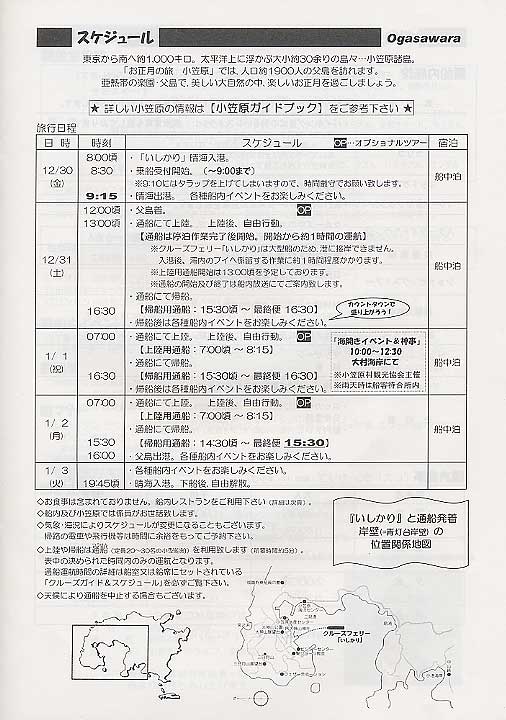 スケジュール
Ogasawara
東京から南へ約1,000キロ。太平洋上に浮かぶ大小約30余りの島々…小笠原諸島。
「お正月の旅 小笠原」では、人口約1900人の父島を訪れます。
亜熱帯の楽園・父島で、美しい大自然の中、楽しいお正月を過ごしましょう。
★ 詳しい小笠原の情報は【小笠原ガイドブック】をご参考下さい ★
旅行日程
日 時 時刻 スケジュール OP…オプショナルツアー 宿泊
12/30 (金) 船中泊
8:00頃 ・「いしかり」晴海入港。
8:30 ・乗船受付開始。(~9:00まで)
※9:10にはタラップを上げてしまいますので、時間厳守でお願い致します。
9:15 ・晴海出港。 各種船内イベントをお楽しみください。
12/31 (土) 船中泊
12:00頃 ・父島着。 OP
13:00頃 ・通船にて上陸。 上陸後、自由行動。
【通船は停泊作業完了後開始。開始から約1時間の運航】
※クルーズフェリー「いしかり」は大型船のため、港に接岸できません。
入港後、湾内のブイへ係留する作業に約1時間程度かかります。
※上陸用通船開始は13:00頃を予定しております。
※通船の開始及び終了は船内放送にてご案内致します。
・通船にて帰船。
16:30 【帰船用通船:15:30頃 ~ 最終便 16:30】
・帰船後は各種船内イベントをお楽しみください。
カウントダウンで
盛り上がろう!
1/ 1 (祝) 船中泊
07:00 ・通船にて上陸。 上陸後、自由行動。 OP
【上陸用通船:7:00頃 ~ 8:15】
・通船にて帰船。
16:30 【帰船用通船:15:30頃 ~ 最終便 16:30】
・帰船後は各種船内イベントをお楽しみください。
「海開きイベント&神事」
10:00~12:30
大村海岸にて
※小笠原村観光協会主催
※雨天時は船客待合所内
1/ 2 (月) 船中泊
07:00 ・通船にて上陸。 上陸後、自由行動。 OP
【上陸用通船:7:00頃 ~ 8:15】
・通船にて帰船。
15:30 【帰船用通船:14:30頃 ~ 最終便 15:30】
16:00 ・父島出港。各種船内イベントをお楽しみください。
1/ 3 (火)
・各種船内イベントをお楽しみください。
19:45頃 ・晴海入港。下船後、自由解散。
◇お食事は含まれておりません。船内レストランをご利用下さい
◇船内及び小笠原では係員がお世話致します。
◇気象・海況によりスケジュールが変更になることもございます。
帰路の電車や飛行機等は時間に余裕をもってご予約下さい。
◇上陸や帰船は通船(定員20~30名の小型船舶)を利用致します(所要時間約5分)。
表中の決められた時間内のみの運航となります。
通船運航時間の詳細は船室又は船席にセットされている
「クルーズガイド&スケジュール」を必ずご覧下さい。
◇天候により通船を中止する場合もございます。
『いしかり』と通船発着
岸壁(=青灯台岸壁)の
位置関係地図
クルーズフェリー
「いしかり」